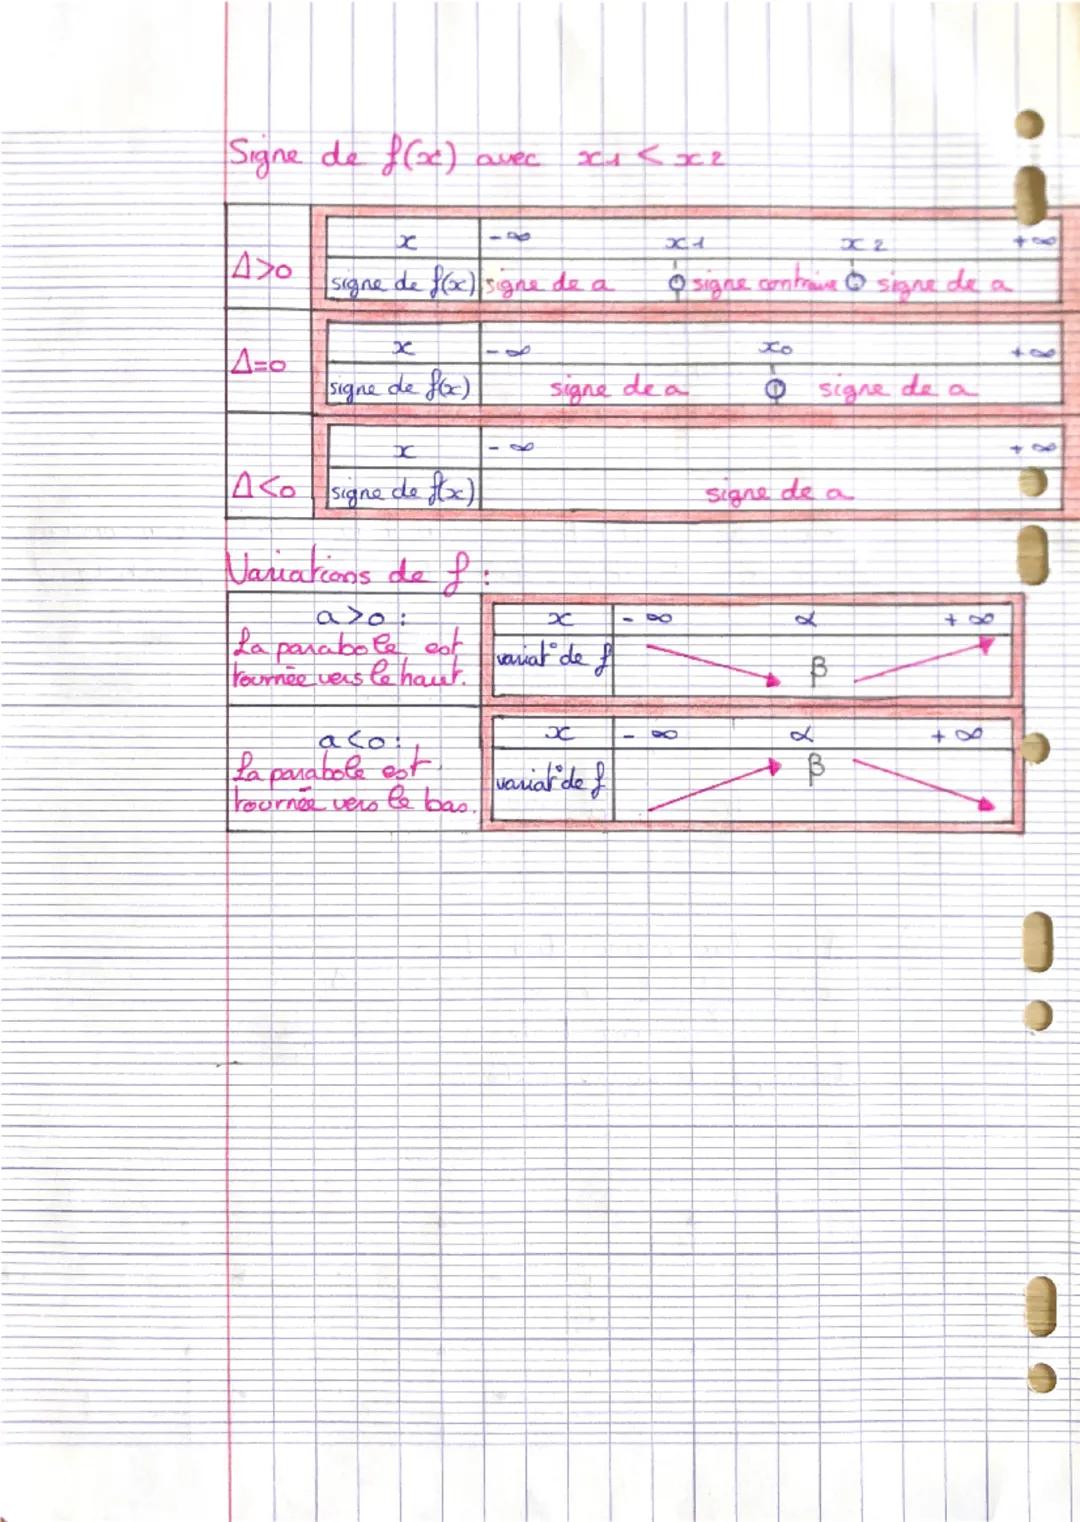 Signe de f(x) avec x1 < x2
Δ>0
x -∞ x1 x2 +∞
signe de f(x) signe de a 0 signe contraire 0 signe de a
Δ=0
x -∞ x0 +∞
signe de f(x) signe de a 0 signe de a
Δ<0
x -∞ +∞
signe de f(x) signe de a
Variations de f :
a>0 :
La parabole est
tournée vers le haut.
x -∞ α +∞
variat° de f β
a<0 :
La parabole est
tournée vers le bas.
x -∞ α +∞
variat° de f β